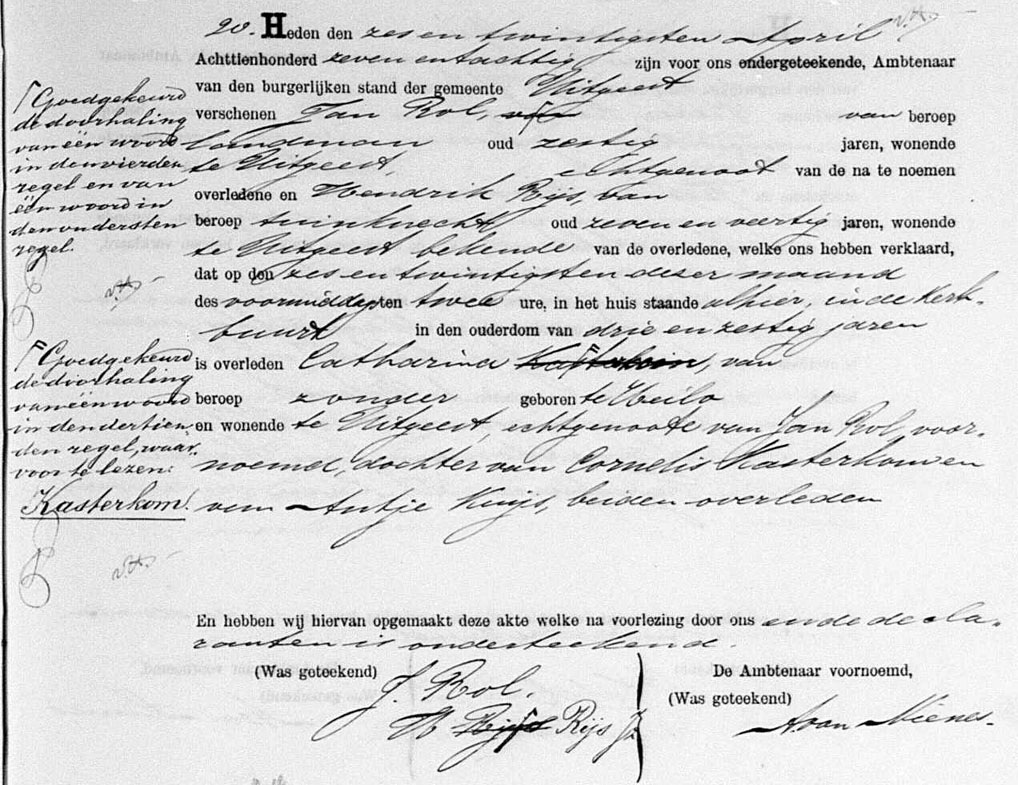 20. Heden den zes en twintigsten April
Achttienhonderd zeven en tachtig zijn voor ons ondergeteekende, Ambtenaar
van den burgerlijken stand der gemeente Uitgeest
verschenen Jan Rol, van van beroep
landman oud zestig jaren, wonende
te Uitgeest, Echtgenoot van de na te noemen
overledene en Hendrik Rijs, van
beroep tuinknecht, oud zeven en veertig jaren, wonende
te Uitgeest bekende van de overledene, welke ons hebben verklaard,
dat op den zes en twintigsten dezer maand
des voormiddags ten twee ure, in het huis staande alhier, in de Kerk-
buurt in den ouderdom van drie en zestig jaren
is overleden Catharina , van
beroep zonder geboren te Heilo
en wonende te Uitgeest, echtgenoote van Jan Rol, voor-
noemd, dochter van Cornelis Kasterkom en
van Antje Kuijs, beiden overleden
En hebben wij hiervan opgemaakt deze akte welke na voorlezing door ons en de decla-
ranten is onderteekend.
(Was geteekend) De Ambtenaar voornoemd,
J. Rol. (Was geteekend)
H Rijs A. van Nienes.
Goedgekeurd
de doorhaling
van één woord
in den vierden
regel en van
één woord in
den ondersten
regel.
Goedgekeurd
de doorhaling
van één woord
in den dertien-
den regel, waar-
voor te lezen:
Kasterkom.